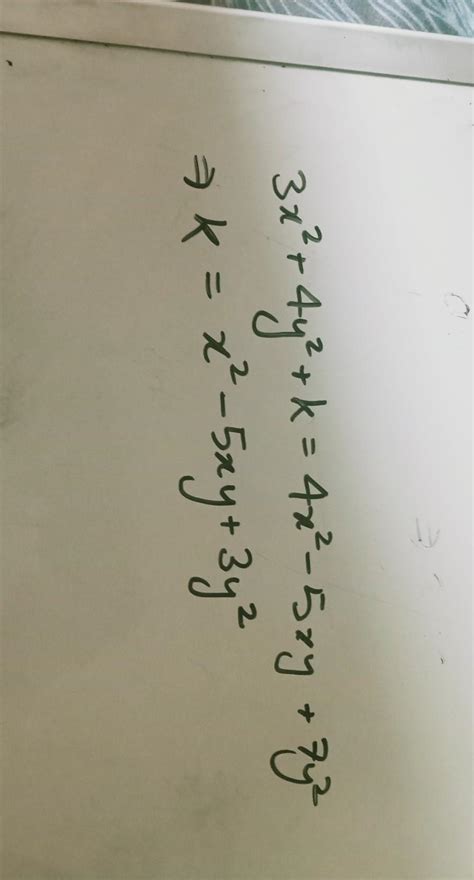 3x² + 4y² + k = 4x² - 5xy + 7y²
⇒ k = x² - 5xy + 3y²